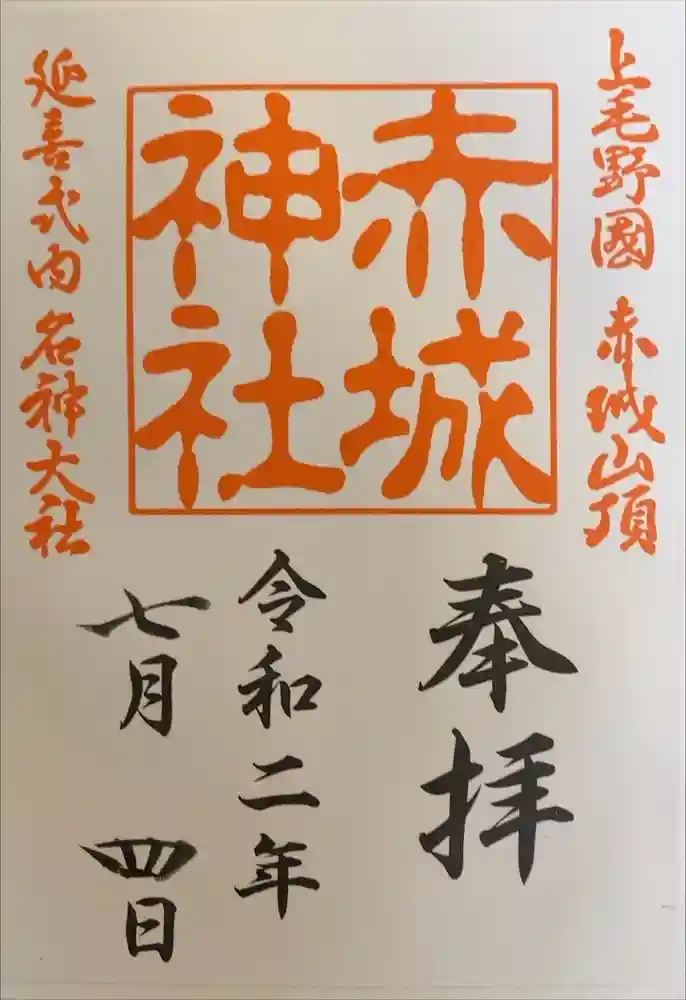 上毛野國 赤城山頂
赤城
神社
延喜式内名神大社
奉拝
令和二年
七月四日